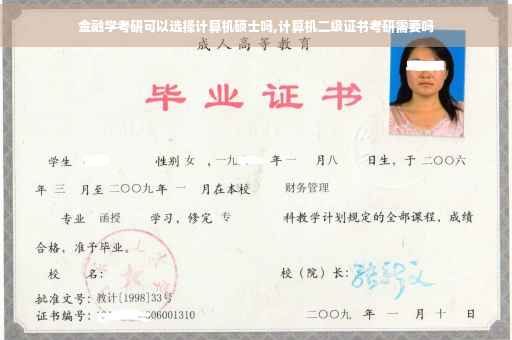 金融学考研可以选择计算机硕士吗,计算机二级证书考研需要吗
成人高等教育
毕业证书
学生 性别 女 ，一九 年 一 月 八 日生，于 二〇〇六
年 三 月至 二〇〇九 年 一 月在本校 财务管理
专业 函授 学习，修完 专 科教学计划规定的全部课程，成绩
合格，准予毕业。
校 名： 校（院）长：
批准文号：教计[1998]33号
证书编号： 06001310 二〇〇九 年 一 月 十 日